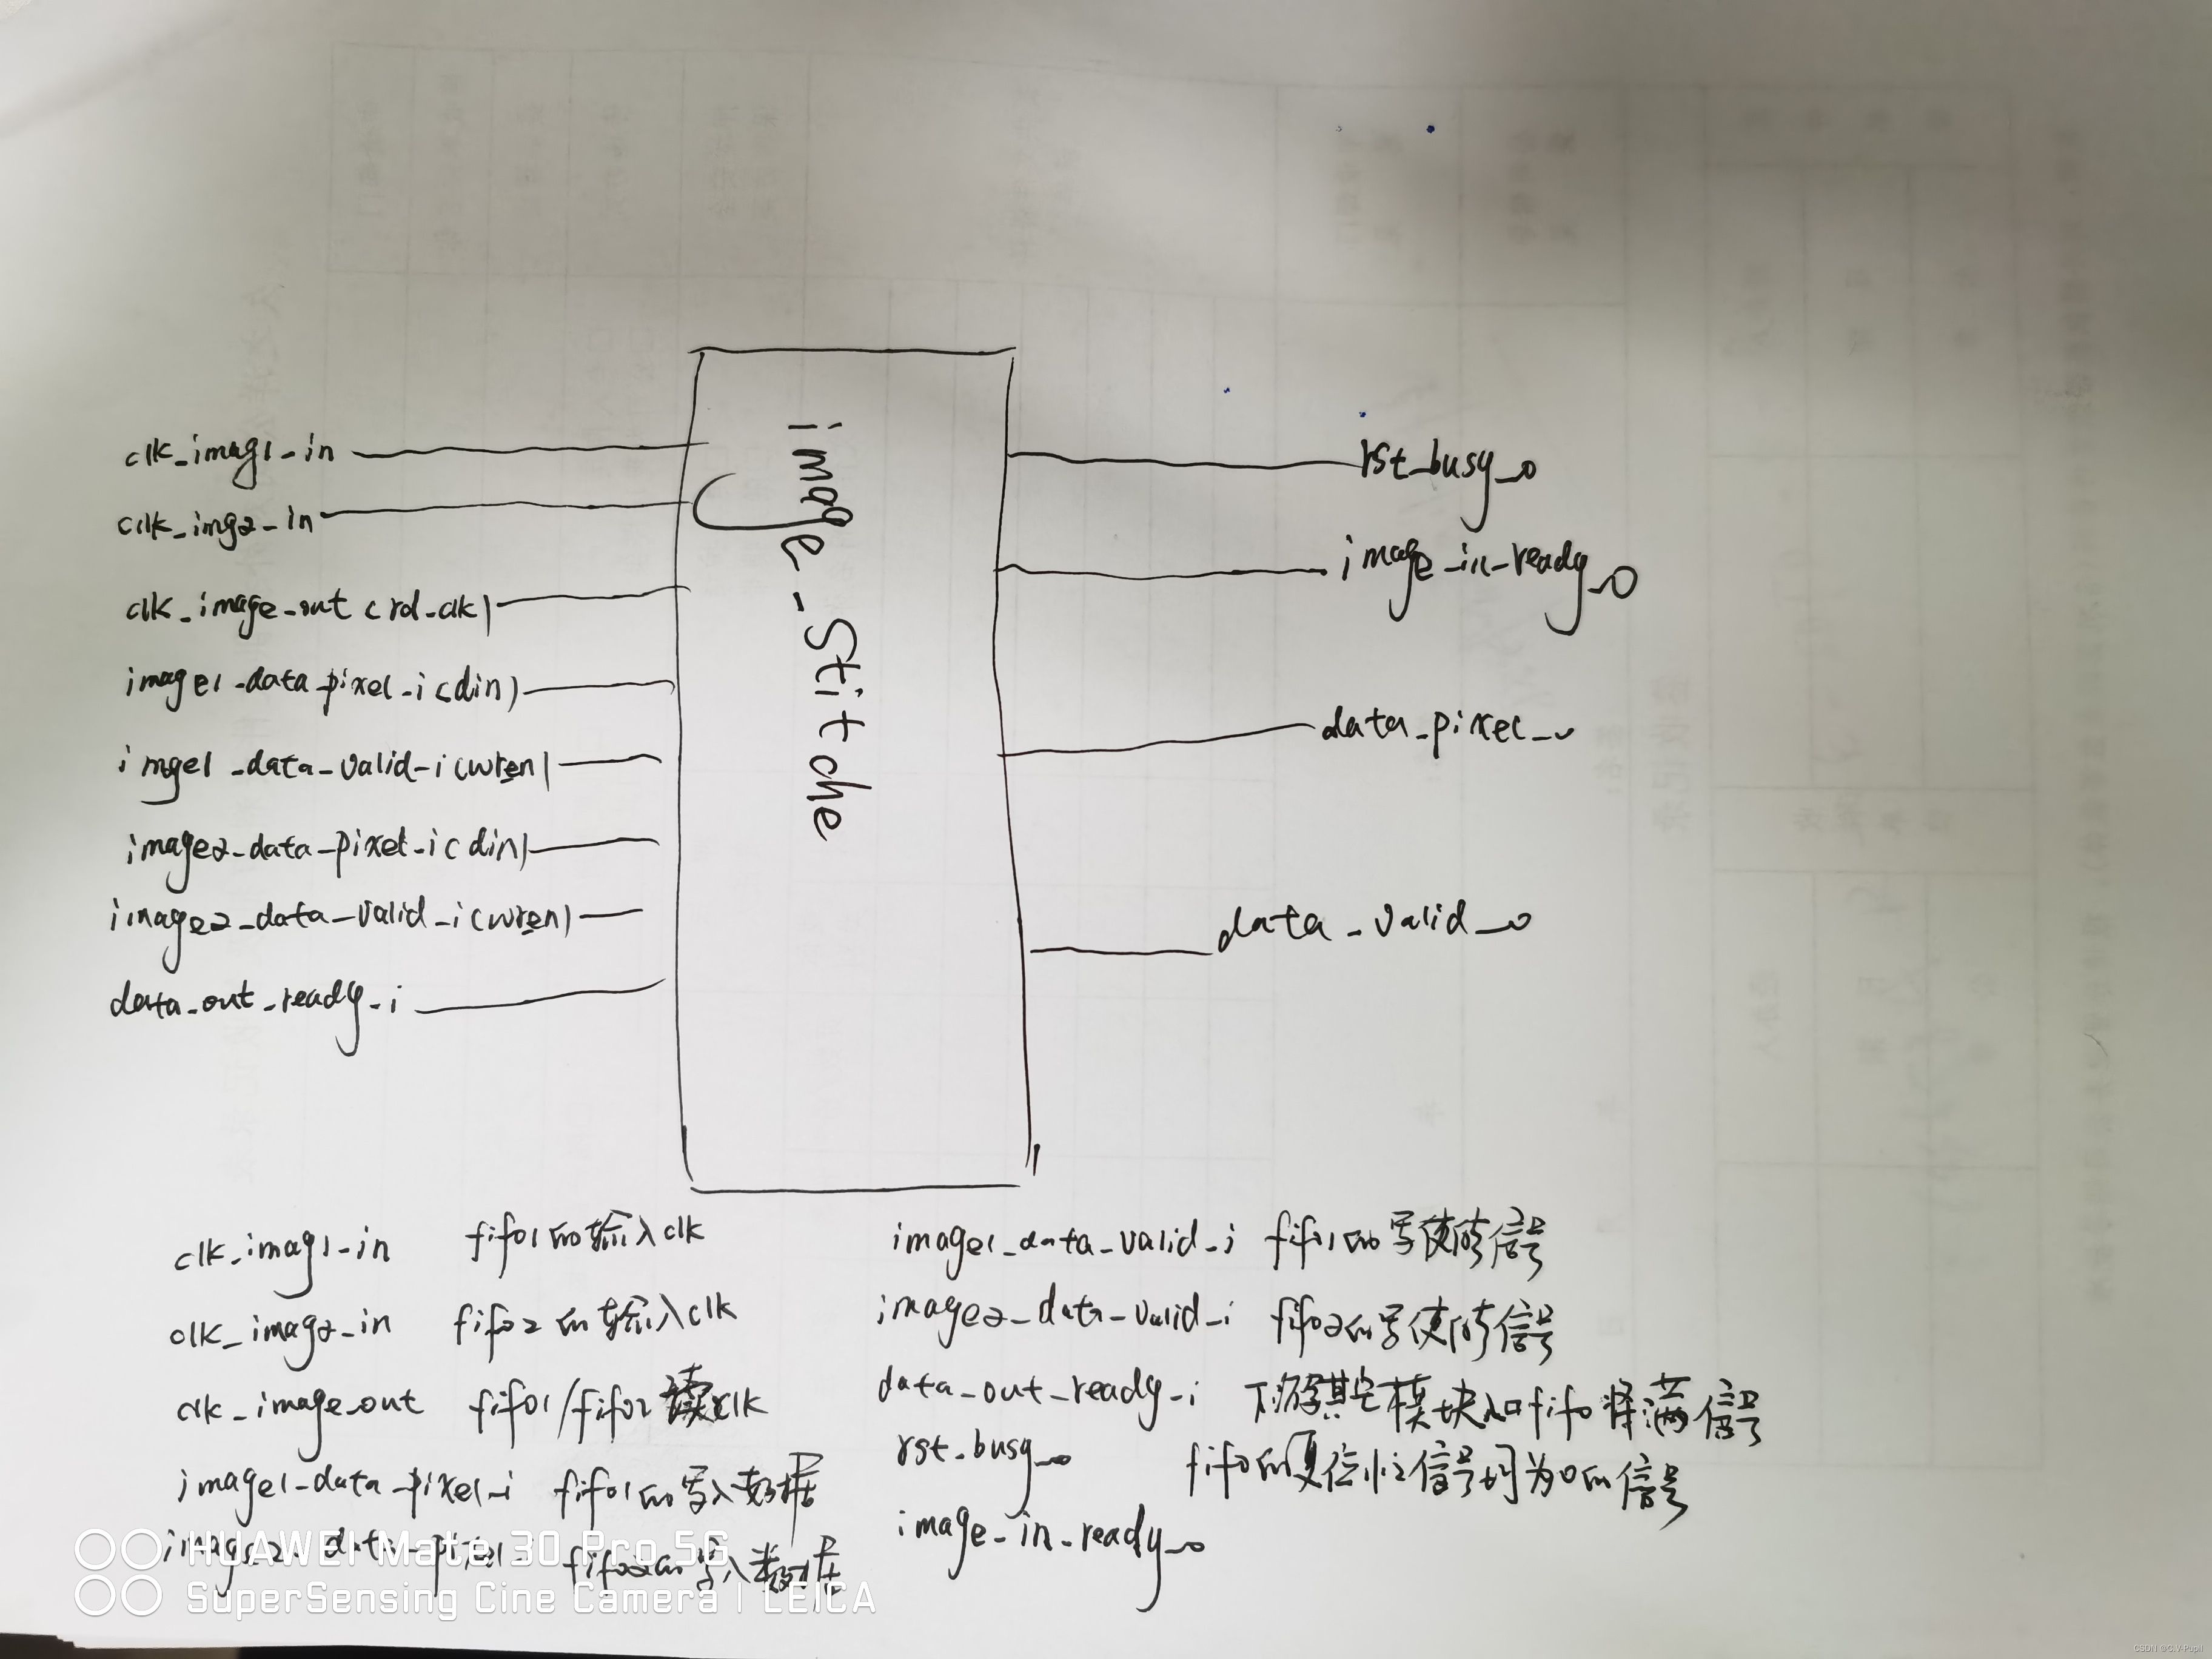 clk_imag1_in
clk_img2_in
clk_image_out (rd_clk)
image1_data_pixel_i (din)
imge1_data_valid_i (wren)
image2_data_pixel_i (din)
image2_data_valid_i (wren)
data_out_ready_i
image_Stitche
rst_busy_o
image_in_ready_o
data_pixel_o
data_valid_o
clk_imag1_in fifo1的输入clk
clk_imag2_in fifo2的输入clk
clk_image_out fifo1/fifo2读clk
image1_data_pixel_i fifo1的写入数据
image2_data_pixel_i fifo2的写入数据
image1_data_valid_i fifo1的写使能信号
image2_data_valid_i fifo2的写使能信号
data_out_ready_i 下游其它模块入口fifo将满信号
rst_busy_o fifo的复位忙信号均为0的信号
image_in_ready_o
HUAWEI Mate 30 Pro 5G
SuperSensing Cine Camera | LEICA
CSDN @C.V-Pupil